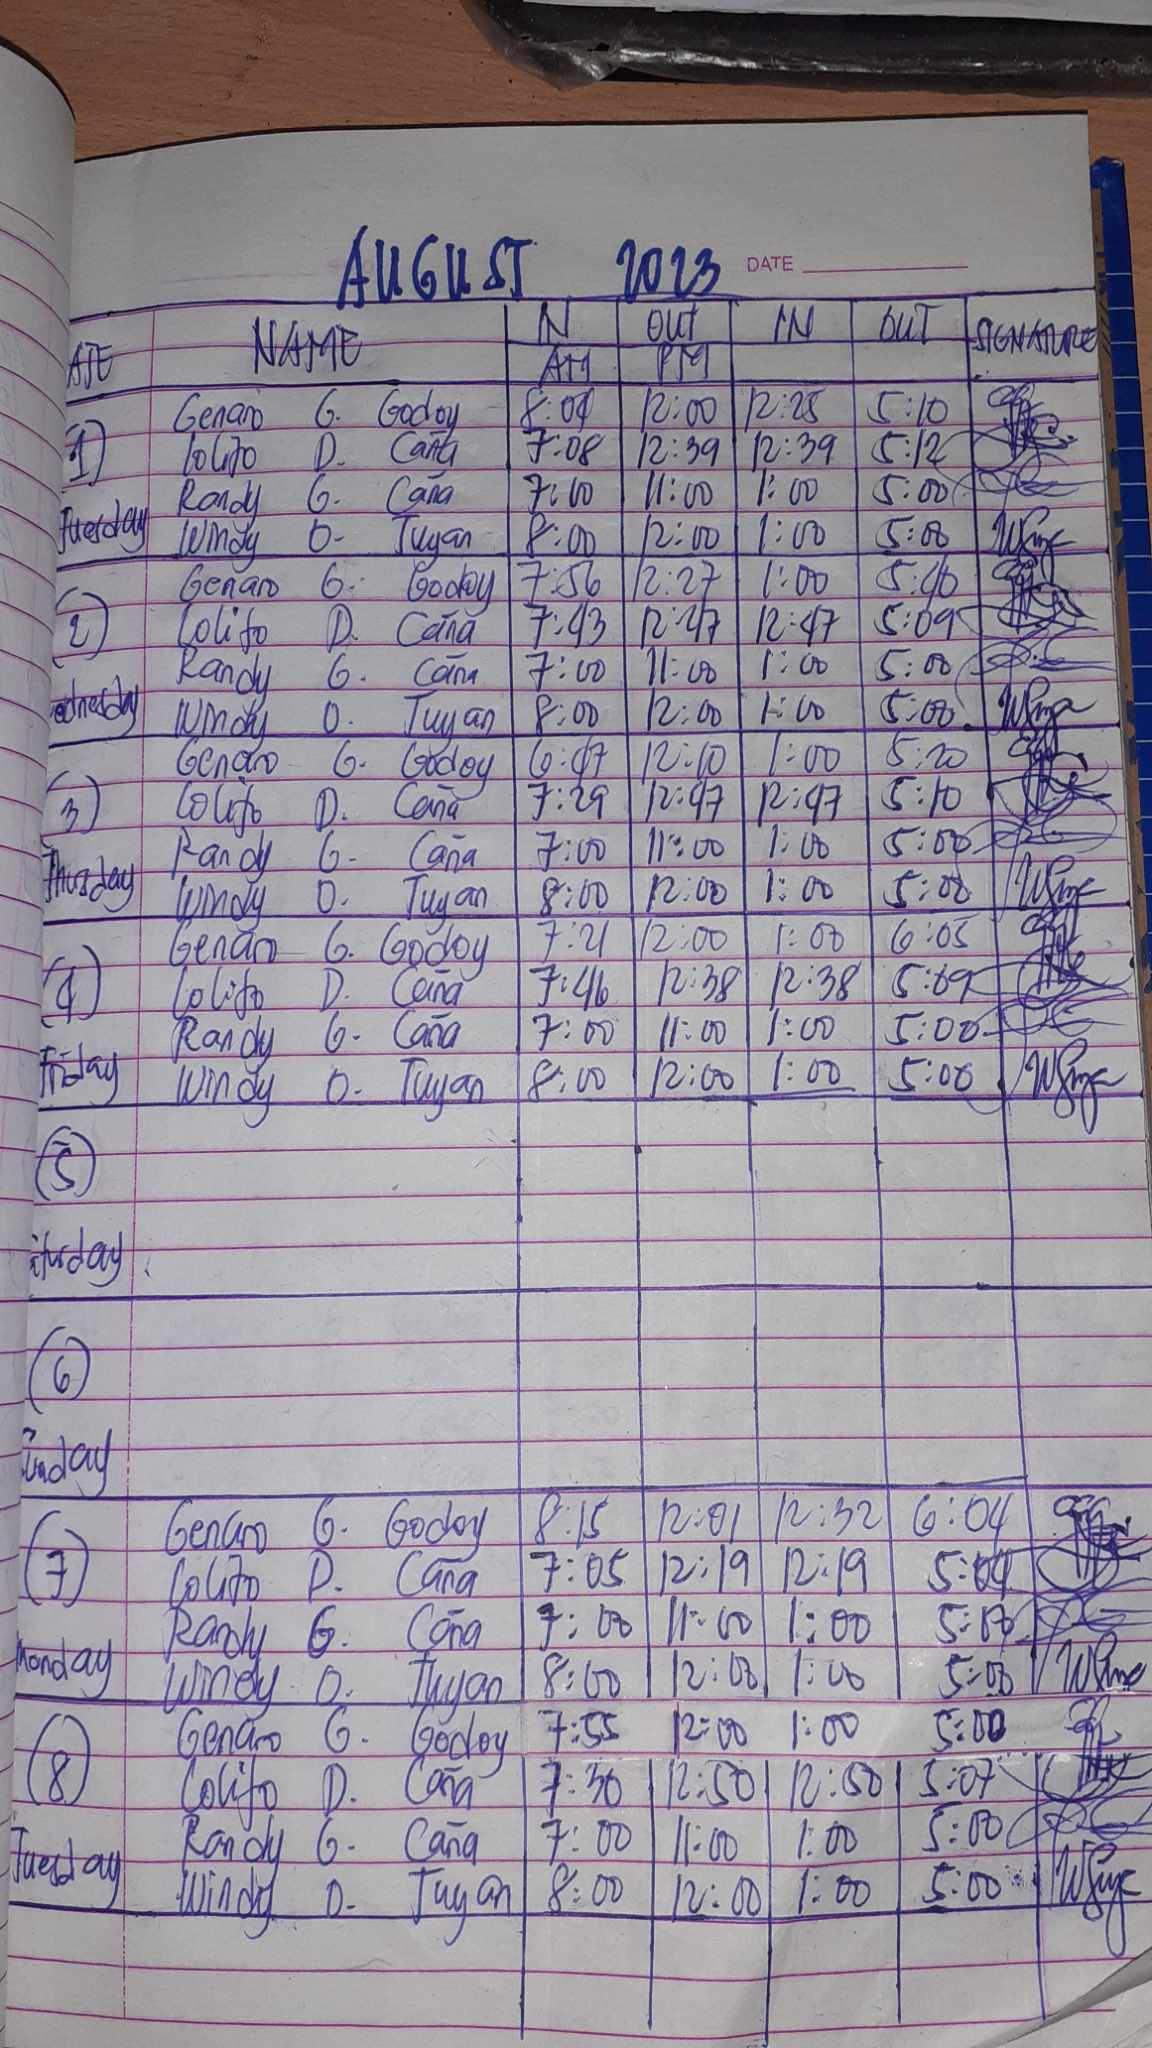 AUGUST 2023 DATE
ATE NAME IN OUT IN OUT SIGNATURE
AM PM
Genaro G. Godoy 8:04 12:00 12:25 5:10
(1) Lolito D. Caña 7:08 12:39 12:39 5:12
Randy G. Caña 7:00 11:00 1:00 5:00
Tuesday Windy O. Tuyan 8:00 12:00 1:00 5:00
Genaro G. Godoy 7:56 12:27 1:00 5:40
(2) Lolito D. Caña 7:43 12:47 12:47 5:09
Randy G. Caña 7:00 11:00 1:00 5:00
ednesday Windy O. Tuyan 8:00 12:00 1:00 5:00
Genaro G. Godoy 6:47 12:10 1:00 5:20
(3) Lolito D. Caña 7:29 12:47 12:47 5:10
Randy G. Caña 7:00 11:00 1:00 5:00
Thursday Windy O. Tuyan 8:00 12:00 1:00 5:00
Genaro G. Godoy 7:21 12:00 1:00 6:05
(4) Lolito D. Caña 7:46 12:38 12:38 5:09
Randy G. Caña 7:00 11:00 1:00 5:00
Friday Windy O. Tuyan 8:00 12:00 1:00 5:00
(5)
aturday
(6)
Sunday
Genaro G. Godoy 8:15 12:01 12:32 6:04
(7) Lolito D. Caña 7:05 12:19 12:19 5:04
Randy G. Caña 7:00 11:00 1:00 5:00
Monday Windy O. Tuyan 8:00 12:00 1:00 5:00
Genaro G. Godoy 7:55 12:00 1:00 5:00
(8) Lolito D. Caña 7:30 12:50 12:50 5:07
Randy G. Caña 7:00 11:00 1:00 5:00
Tuesday Windy O. Tuyan 8:00 12:00 1:00 5:00